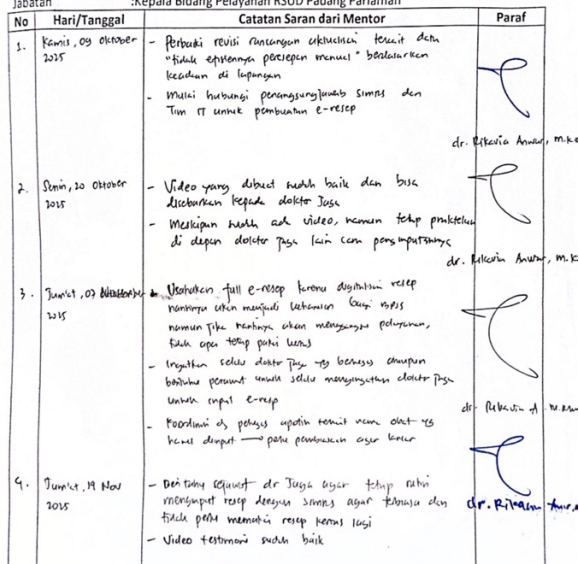 Jabatan :Kepala Bidang Pelayanan RSUD Padang Pariaman
No Hari/Tanggal Catatan Saran dari Mentor Paraf
1. Kamis, 09 Oktober 2025
- Perbaiki revisi rancangan aktualisasi terkait data
"tidak efisiennya peresepan manual" berdasarkan
keadaan di lapangan
- Mulai hubungi penanggungjawab SIMRS dan
Tim IT untuk pembuatan e-resep
dr. Rikavia Anwar, M.K
2. Senin, 20 Oktober 2025
- Video yang dibuat sudah baik dan bisa
disebarkan kepada dokter Jaga
- Meskipun sudah ada video, namun tetap praktekan
di depan dokter jaga lain cara penginputannya
dr. Rikavia Anwar, M.K
3. Jum'at, 07 2025
- Usahakan full e-resep karena digitalisasi resep
nantinya akan menjadi bagi BPJS
namun jika nantinya akan mengganggu pelayanan,
tidak apa tetap pakai kertas
- Ingatkan selalu dokter jaga yg bertugas ataupun
perawat untuk selalu mengingatkan dokter jaga
untuk input e-resep
- Koordinasi dg petugas apotik terkait nama obat yg
harus diinput → perlu pembiasaan agar lancar
dr. Rikavia A
4. Jum'at, 14 Nov 2025
- dr Jaga agar tetap rutin
menginput resep dengan simrs agar terbiasa dan
tidak perlu memakai resep kertas lagi
- Video testimoni sudah baik
dr. Rikavia